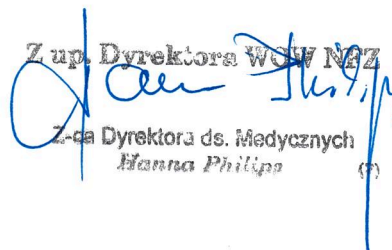 Z up. Dyrektora WOW NFZ
Z-ca Dyrektora ds. Medycznych
Hanna Philips
(7)